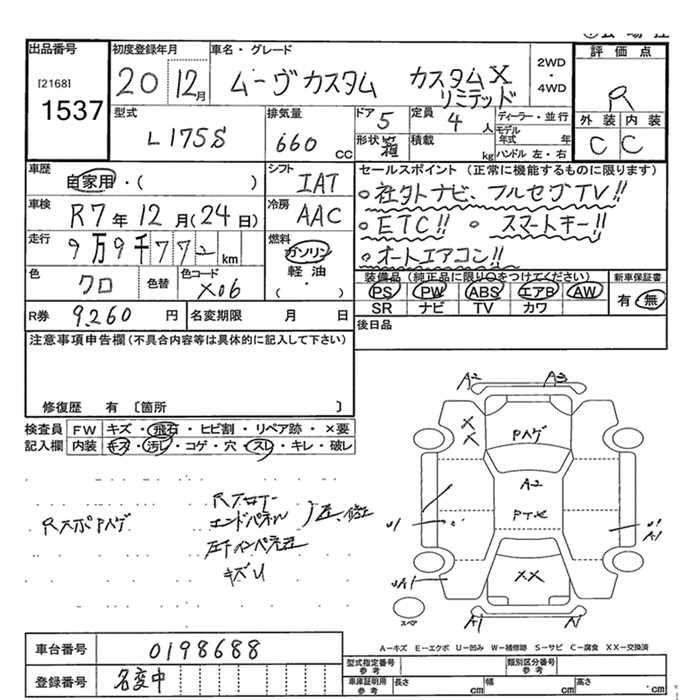 出品番号
[2168]
1537
初度登録年月
20 12月
車名・グレード
ムーヴカスタム カスタムX
リミテッド
2WD
・
4WD
評価点
R
外装 内装
C C
型式
L175S
排気量
660 CC
ドア
5
定員
4 人
ディーラー・並行
形状
箱
積載
kg
モデル年式 年
ハンドル 左・右
車歴
自家用・( )
シフト
IAT
車検
R7年12月(24日)
冷房
AAC
走行
9万9千772 km
燃料
ガソリン
軽油
・( )
色
クロ
色替
色コード
X06
R券 9,260 円
名変期限 月 日
セールスポイント(正常に機能するものに限ります)
◦社外ナビ、フルセグTV!!
◦ETC!! ◦スマートキー!!
◦オートエアコン!!
装備品(純正品に限り○をつけてください)
PS PW ABS エアB AW
SR ナビ TV カワ
新車保証書
有・無
後日品
注意事項申告欄(不具合内容等は具体的に記入して下さい)
修復歴 有〔箇所 〕
検査員記入欄
FW キズ・飛石・ヒビ割・リペア跡・×要
内装 キズ・汚レ・コゲ・穴・スレ・キレ・破レ
エンドパネル
キズU
A2 A3
X
X
A2
U1
U1
A1
UA1
XX
A1
スペア
A−キズ E−エクボ U−凹み W−補修跡 S−サビ C−腐食 XX−交換済
車台番号 0198688
登録番号 名変中
型式指定番号
参考
類別区分番号
参考
車庫証明用
参考
長さ cm
幅 cm
高さ cm